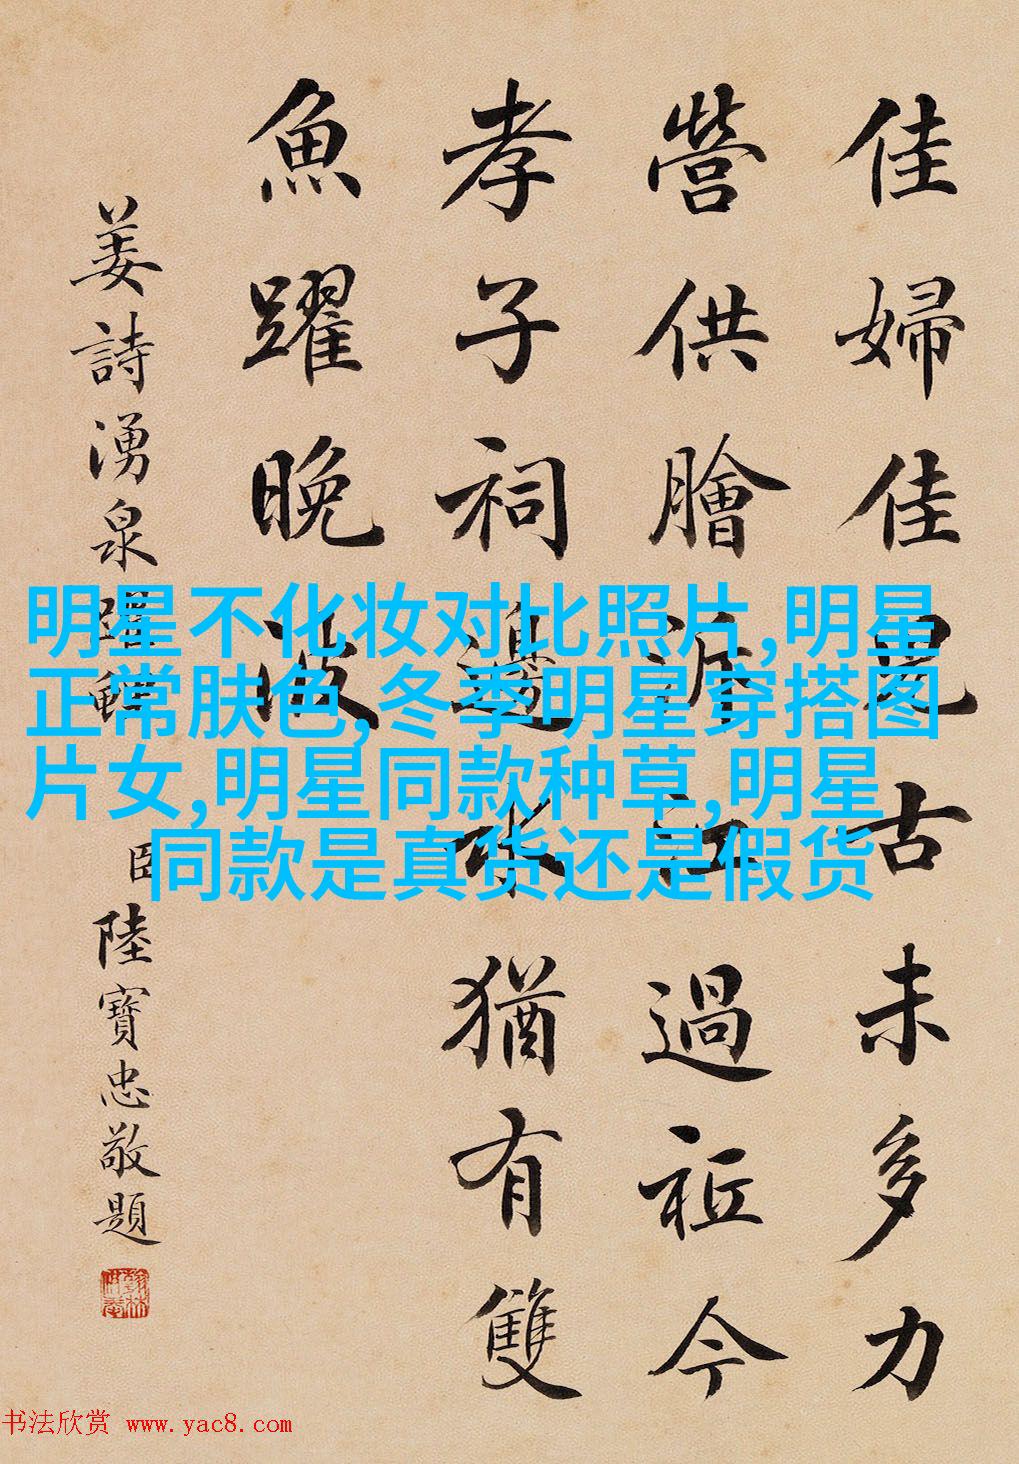 佳婦佳兒古未多力
營供膾泝江過祗今
孝子祠邊水猶有雙
魚躍晚波
姜詩湧泉躍鯉
臣陸寶忠敬題
明星不化妆对比照片,明星
正常肤色,冬季明星穿搭图
片女,明星同款种草,明星
同款是真货还是假货
书法欣赏 www.yac8.com